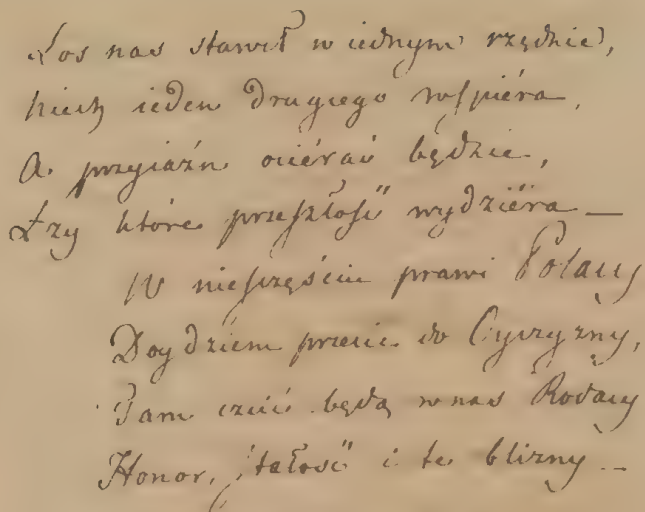 Los nas stawił w iednym rzędzie,
Niech ieden drugiego wspiéra,
A przyiaźń ociérać będzie,
Łzy które przeszłość wydziéra —
W nieszczęściu prawi Polacy
Doydziem przecie do Oyczyzny,
Tam czcić będą w nas Rodacy
Honor, stałość i te blizny —